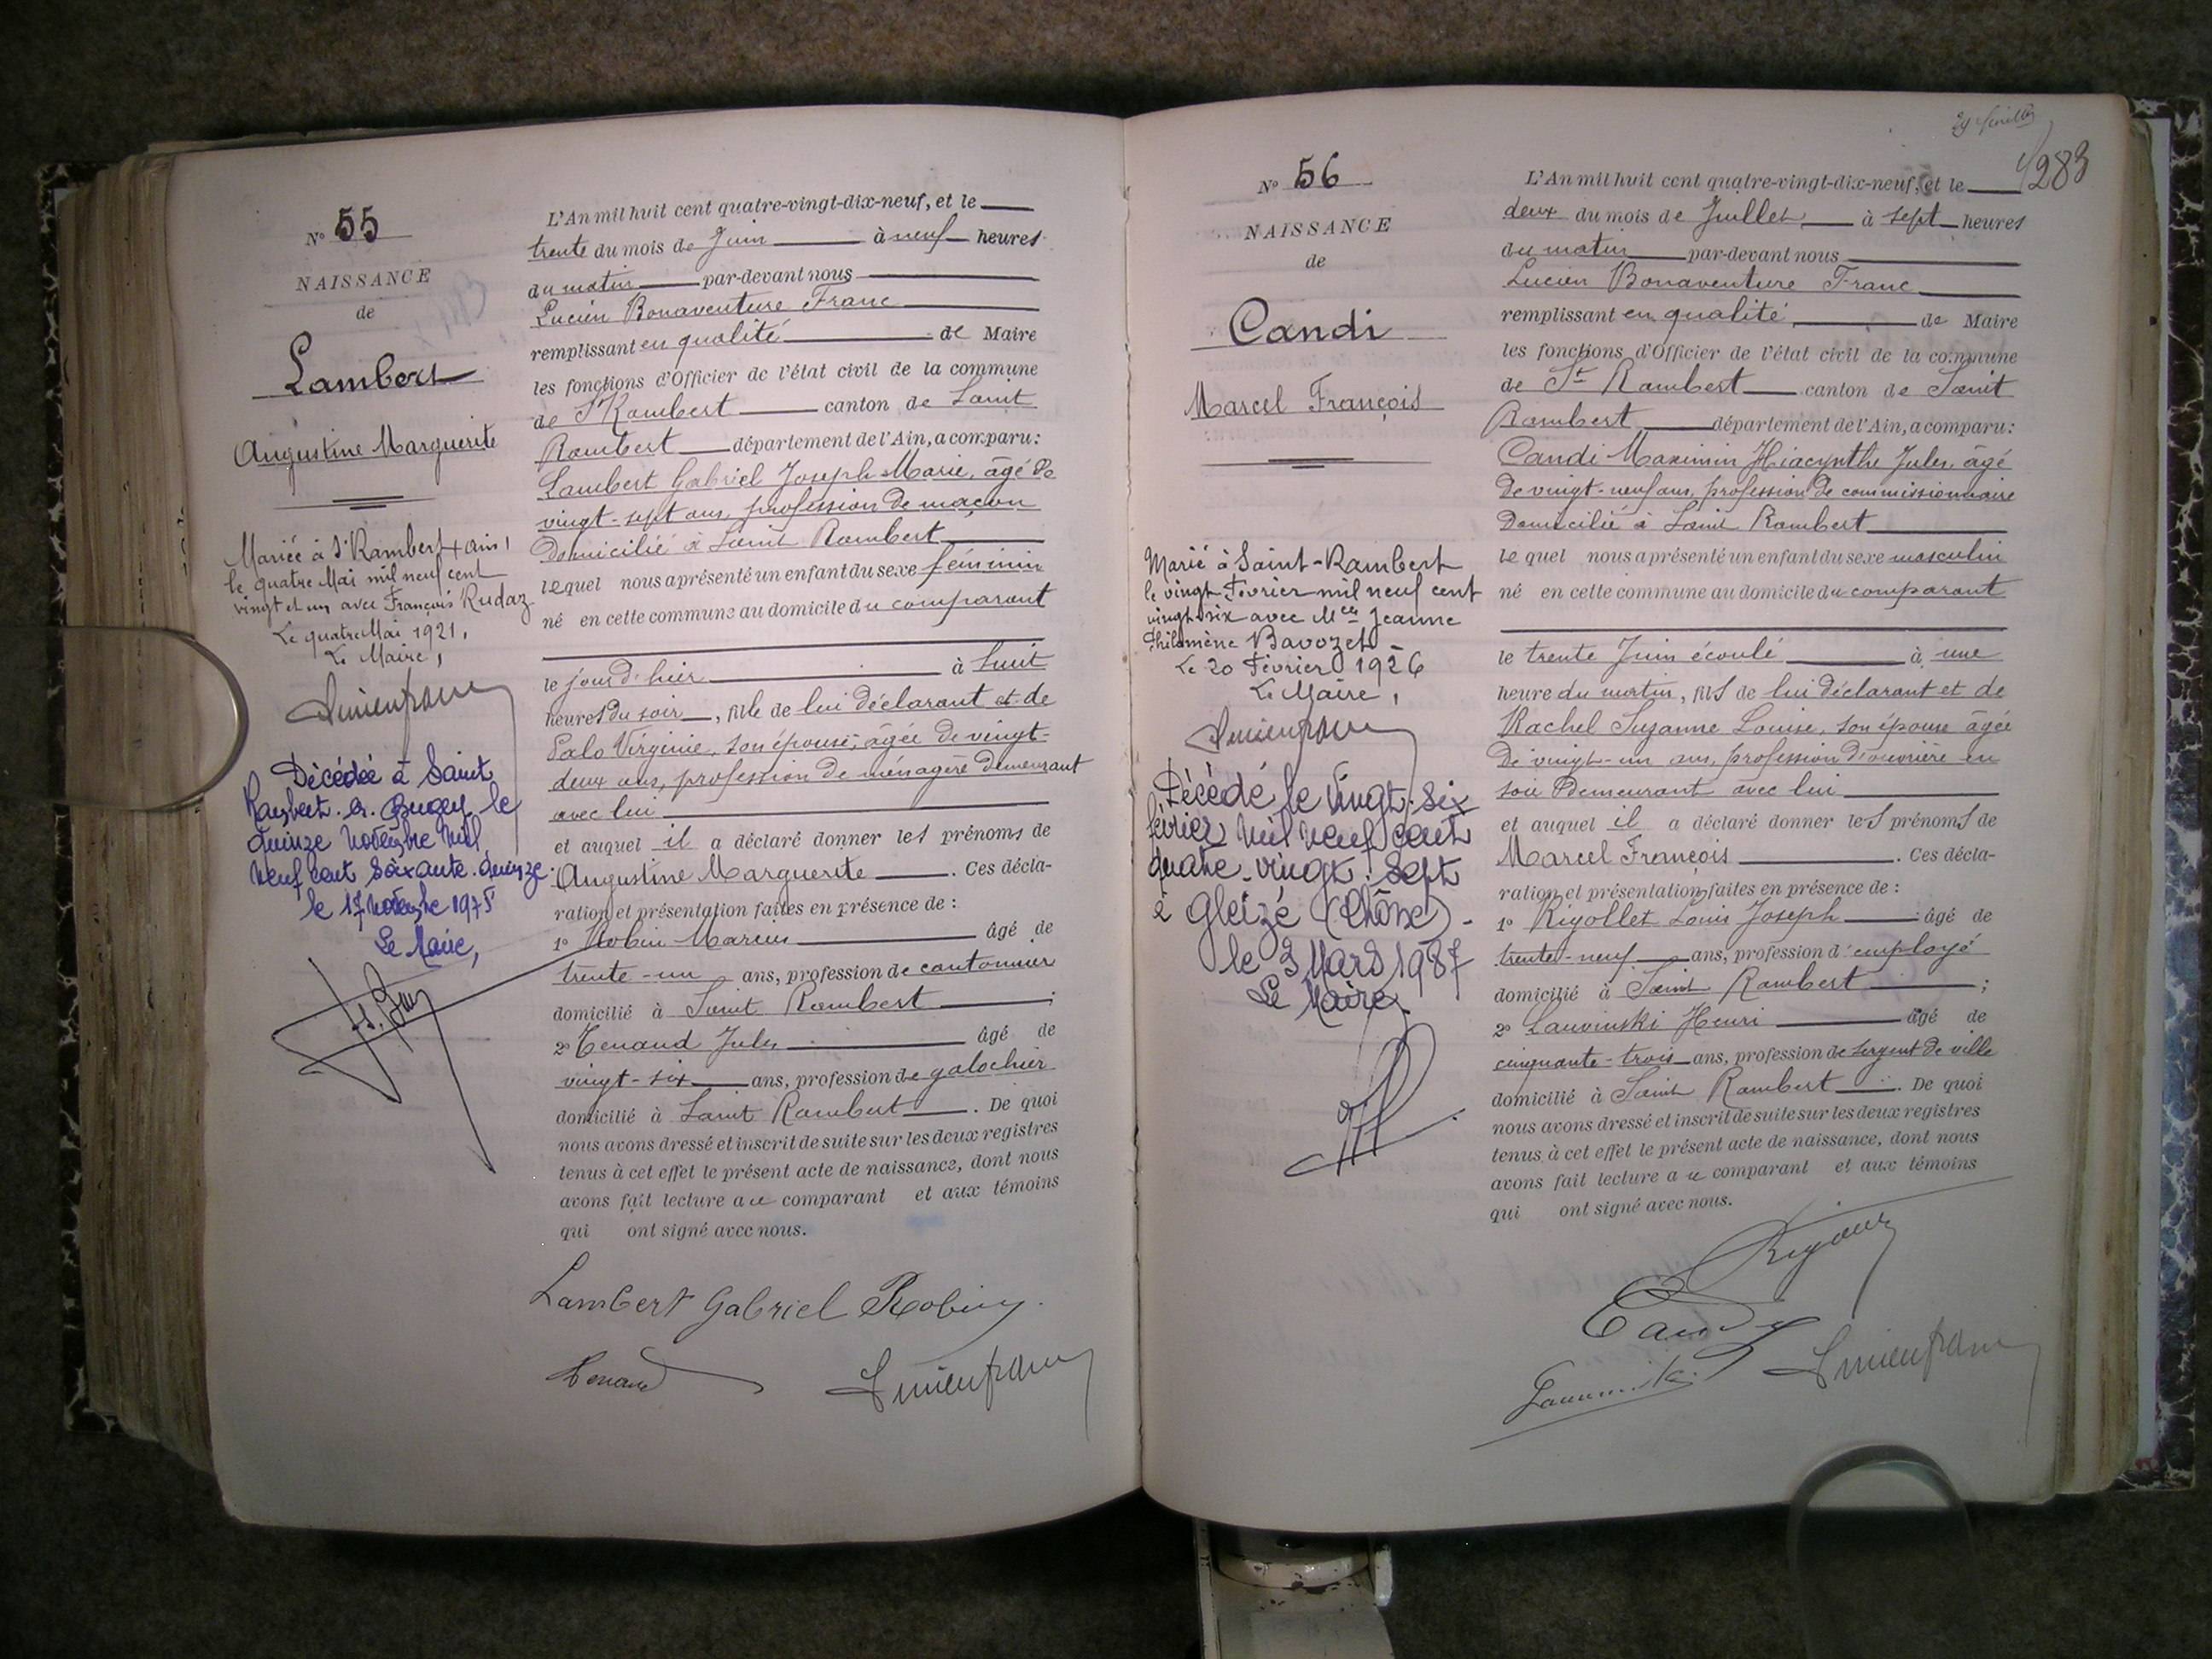 N° 55
NAISSANCE
de
Lambert
Augustine Marguerite
Mariée à St Rambert (Ain)
le quatre Mai mil neuf cent
vingt et un avec François Rudaz
Le quatre Mai 1921,
Le Maire,
Lucien franc
Décédée à Saint
Rambert. en. Bugey le
Quinze Novembre Mil
Neuf cent Soixante. Quinze.
le 17 Novembre 1975
Le Maire,
L'An mil huit cent quatre-vingt-dix-neuf, et le
trente du mois de Juin à neuf heures
du matin par-devant nous
Lucien Bonaventure Franc
remplissant en qualité de Maire
les fonctions d'Officier de l'état civil de la commune
de St Rambert canton de Saint
Rambert département de l'Ain, a comparu:
Lambert Gabriel Joseph Marie, âgé de
vingt-sept ans, profession de maçon
domicilié à Saint Rambert
lequel nous a présenté un enfant du sexe féminin
né en cette commune au domicile du comparant
le jour d'hier à huit
heures du soir, fille de lui déclarant et de
Palo Virginie, son épouse, âgée de vingt-
deux ans, profession de ménagère demeurant
avec lui
et auquel il a déclaré donner les prénoms de
Augustine Marguerite. Ces décla-
ration et présentation faites en présence de :
1° Robin Marcus âgé de
trente-un ans, profession de cantonnier
domicilié à Saint Rambert ;
2° Tenand Jules âgé de
vingt-six ans, profession de galochier
domicilié à Saint Rambert. De quoi
nous avons dressé et inscrit de suite sur les deux registres
tenus à cet effet le présent acte de naissance, dont nous
avons fait lecture au comparant et aux témoins
qui ont signé avec nous.
Lambert Gabriel Robin
Tenand Lucien franc
29 feuillet
283
N° 56
NAISSANCE
de
Candi
Marcel François
Marié à Saint-Rambert
le vingt Février mil neuf cent
vingt-six avec Melle Jeanne
Philomène Bavozet
Le 20 Février 1926
Le Maire,
Lucien franc
Décédé le Vingt. Six
février Mil Neuf cent
quatre-vingt. Sept
à Gleizé (Rhône).
le 3 Mars 1987
Le Maire,
L'An mil huit cent quatre-vingt-dix-neuf, et le
deux du mois de Juillet à sept heures
du matin par-devant nous
Lucien Bonaventure Franc
remplissant en qualité de Maire
les fonctions d'Officier de l'état civil de la commune
de St Rambert canton de Saint
Rambert département de l'Ain, a comparu:
Candi Maximin Hiacynthe Jules, âgé
de vingt-neuf ans, profession de commissionnaire
domicilié à Saint Rambert
lequel nous a présenté un enfant du sexe masculin
né en cette commune au domicile du comparant
le trente Juin écoulé à une
heure du matin, fils de lui déclarant et de
Rachel Suzanne Louise, son épouse âgée
de vingt-un ans, profession d'ouvrière en
soie demeurant avec lui
et auquel il a déclaré donner les prénoms de
Marcel François. Ces décla-
ration et présentation faites en présence de :
1° Rigollet Louis Joseph âgé de
trente-neuf ans, profession d'employé
domicilié à Saint Rambert ;
2° Lauvinski Henri âgé de
cinquante-trois ans, profession de sergent de ville
domicilié à Saint Rambert. De quoi
nous avons dressé et inscrit de suite sur les deux registres
tenus à cet effet le présent acte de naissance, dont nous
avons fait lecture au comparant et aux témoins
qui ont signé avec nous.
Candy
Lucien franc